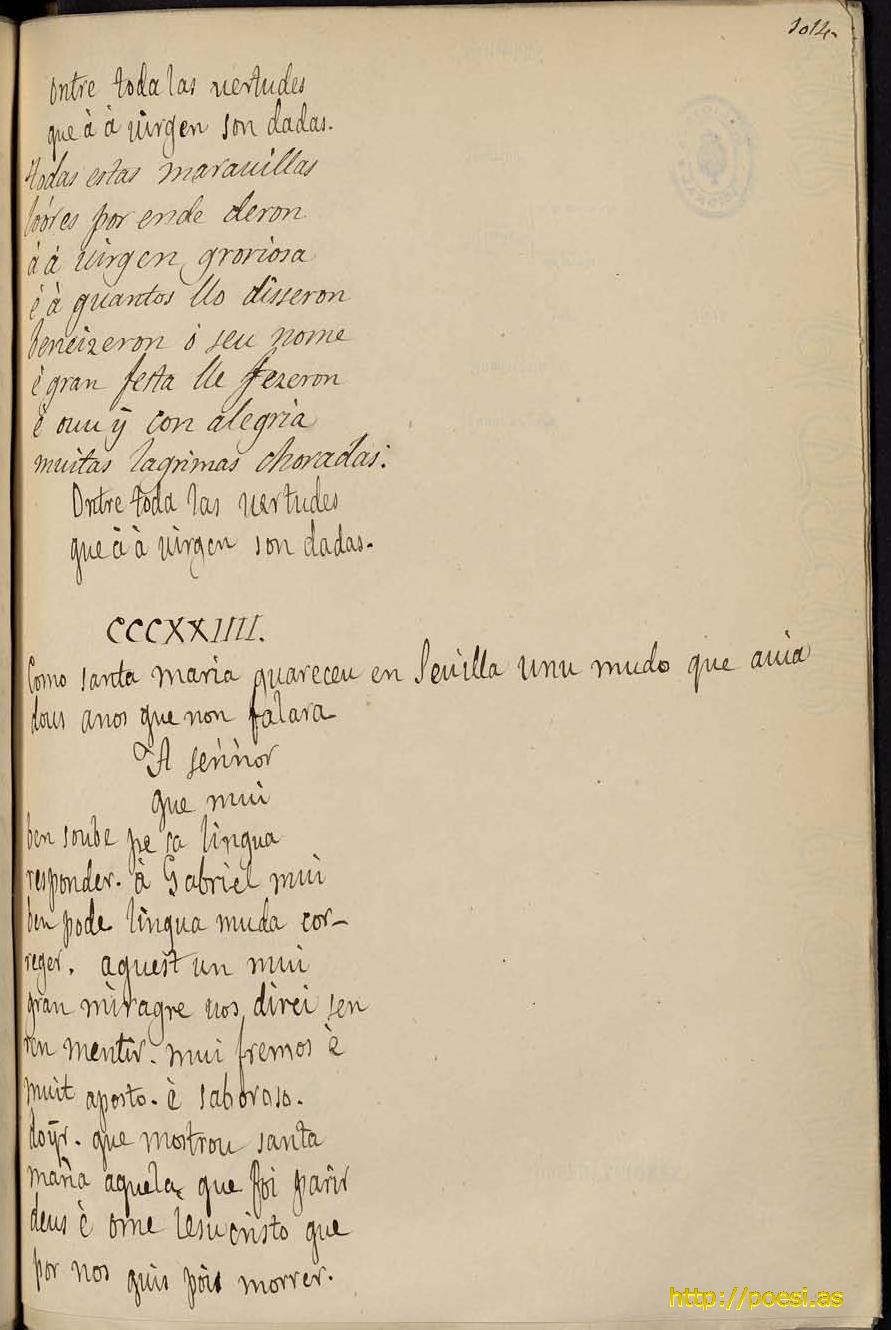 1014-
Ontre toda las uertudes
que à à uirgen son dadas.
todas estas marauillas
loóres por ende deron
à à uirgen groriosa
é à quantos llo disseron
beneizeron ó seu nome
é gran festa lle fezeron
é ouu ÿ con alegria
muitas lagrimas choradas:
Ontre toda las uertudes
que à à uirgen son dadas.
CCCXXIIII.
Como santa maria guareceu en Seuilla unu mudo que auia
dous anos que non falara
A sennor
que mui
ben soube pe sa lingua
responder. à Gabriel mui
ben pode lingua muda cor-
reger. aquest un mui
gran miragre uos direi sen
ren mentir. mui fremos è
muit aposto. è saboroso.
doÿr. que mostrou santa
maria aquela, que foi parir
deus è ome Iesucristo que
por nos quis pois morrer.
http://poesi.as